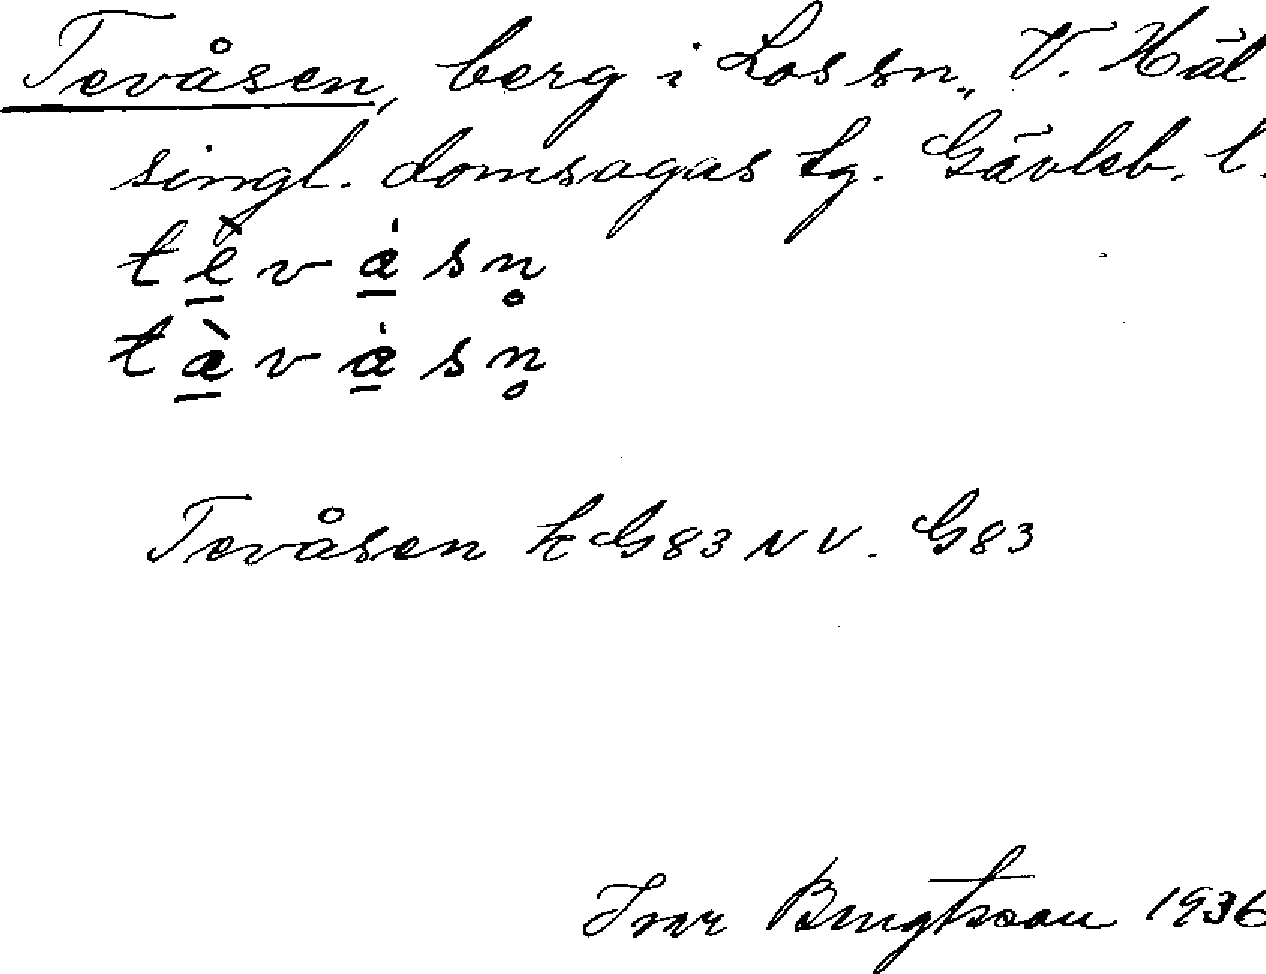 Tevåsen, berg i Los sn., V. Häl
singl. domsagas tg. Gävleb. l.
tèvåsn̥
tæ̀våsn̥
Tevåsen k G83 NV. G83
Ivar Bengtsson 1936